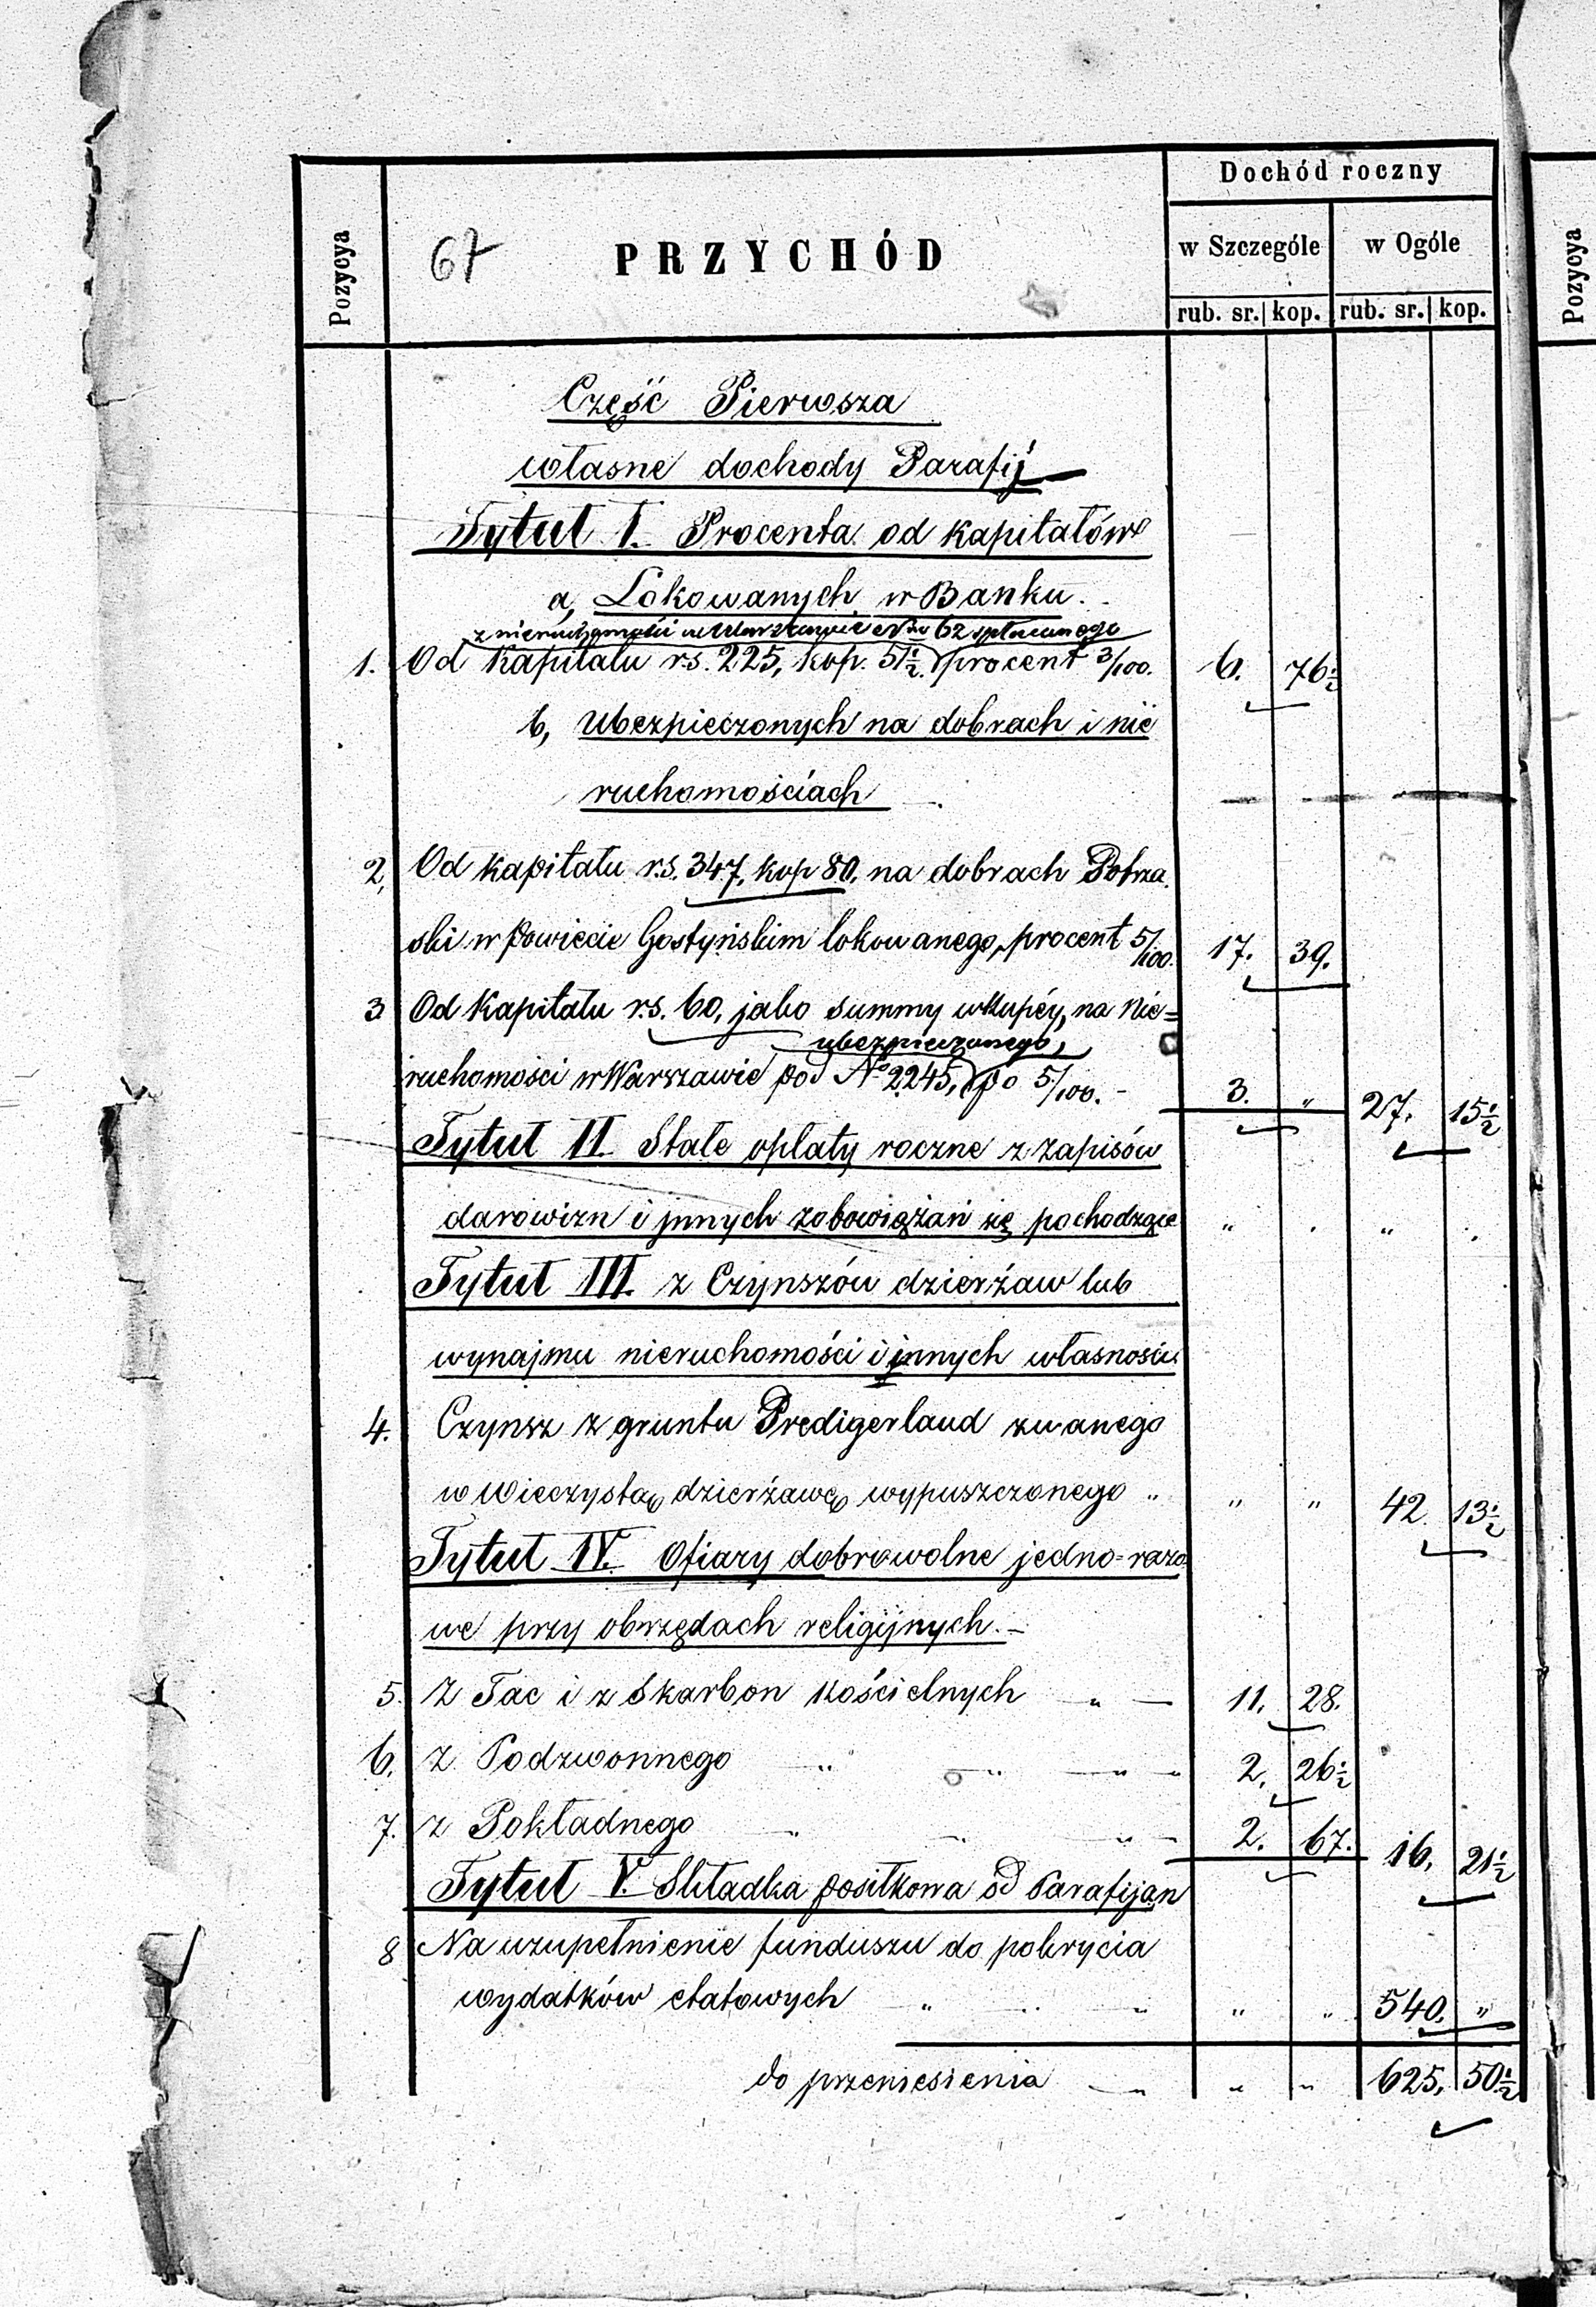 Dochód roczny
Pozycya
67
PRZYCHÓD
w Szczególe
w Ogóle
Pozycya
rub. sr. kop. rub. sr. kop.
Część Pierwsza
własne dochody Parafij
Tytuł I. Procenta od kapitałów
a, Lokowanych w Banku.
z nieruchomości w Warszawie No 62 spłaconego
1. Od Kapitału r.s. 225, kop. 51½. procent 3/100. 6. 76½
b, Ubezpieczonych na dobrach i nie
ruchomościach
2, Od kapitału r.s. 347, kop 80. na dobrach
ski w Powiecie Gostyńskim lokowanego, procent 5/100. 17. 39.
3 Od Kapitału r.s. 60, jako summy wkupéy, na Nie=
ubezpieczonego,
ruchomości w Warszawie pod No 2245, po 5/100. - 3. " 27. 15½
Tytuł II. Stałe opłaty roczne z zapisów
darowizn i jnnych zobowiązań się pochodzące " . " .
Tytuł III. z Czynszów dzierżaw lub
wynajmu nieruchomości i jnnych własności
4. Czynsz z gruntu Predigerland zwanego
w Wieczystą dzierżawę wypuszczonego " " " 42. 13½
Tytuł IV. Ofiary dobrowolne jedno=razo
we przy obrzędach religijnych. -
5. Z Tac i z Skarbon Kościelnych " — 11. 28.
6. z Podzwonnego " " " " 2. 26½
7. z Pokładnego " " " 2. 67. 16. 21½
Tytuł V. Składka posiłkowa od Parafijan
8 Na uzupełnienie funduszu do pokrycia
wydatków etatowych " " " " " 540. "
do przeniesienia " " " 625. 50½